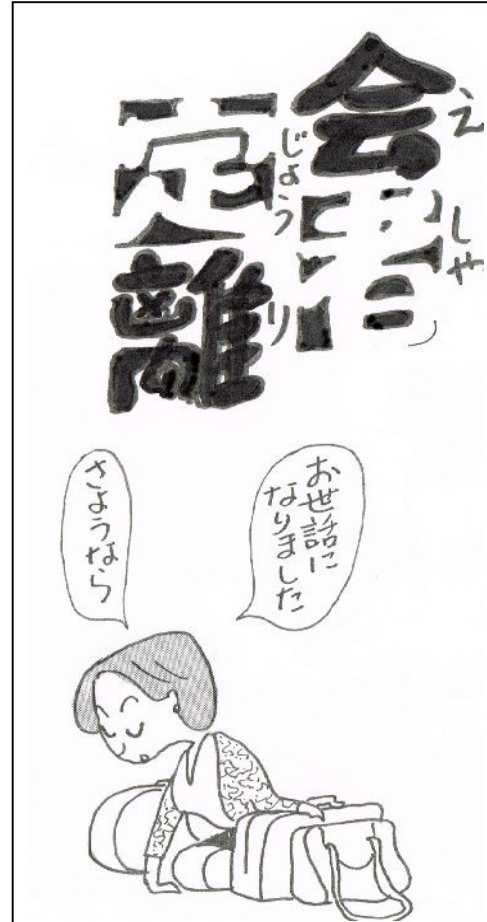 会者
えしゃ
定離
じょうり
お世話に
なりました
さようなら